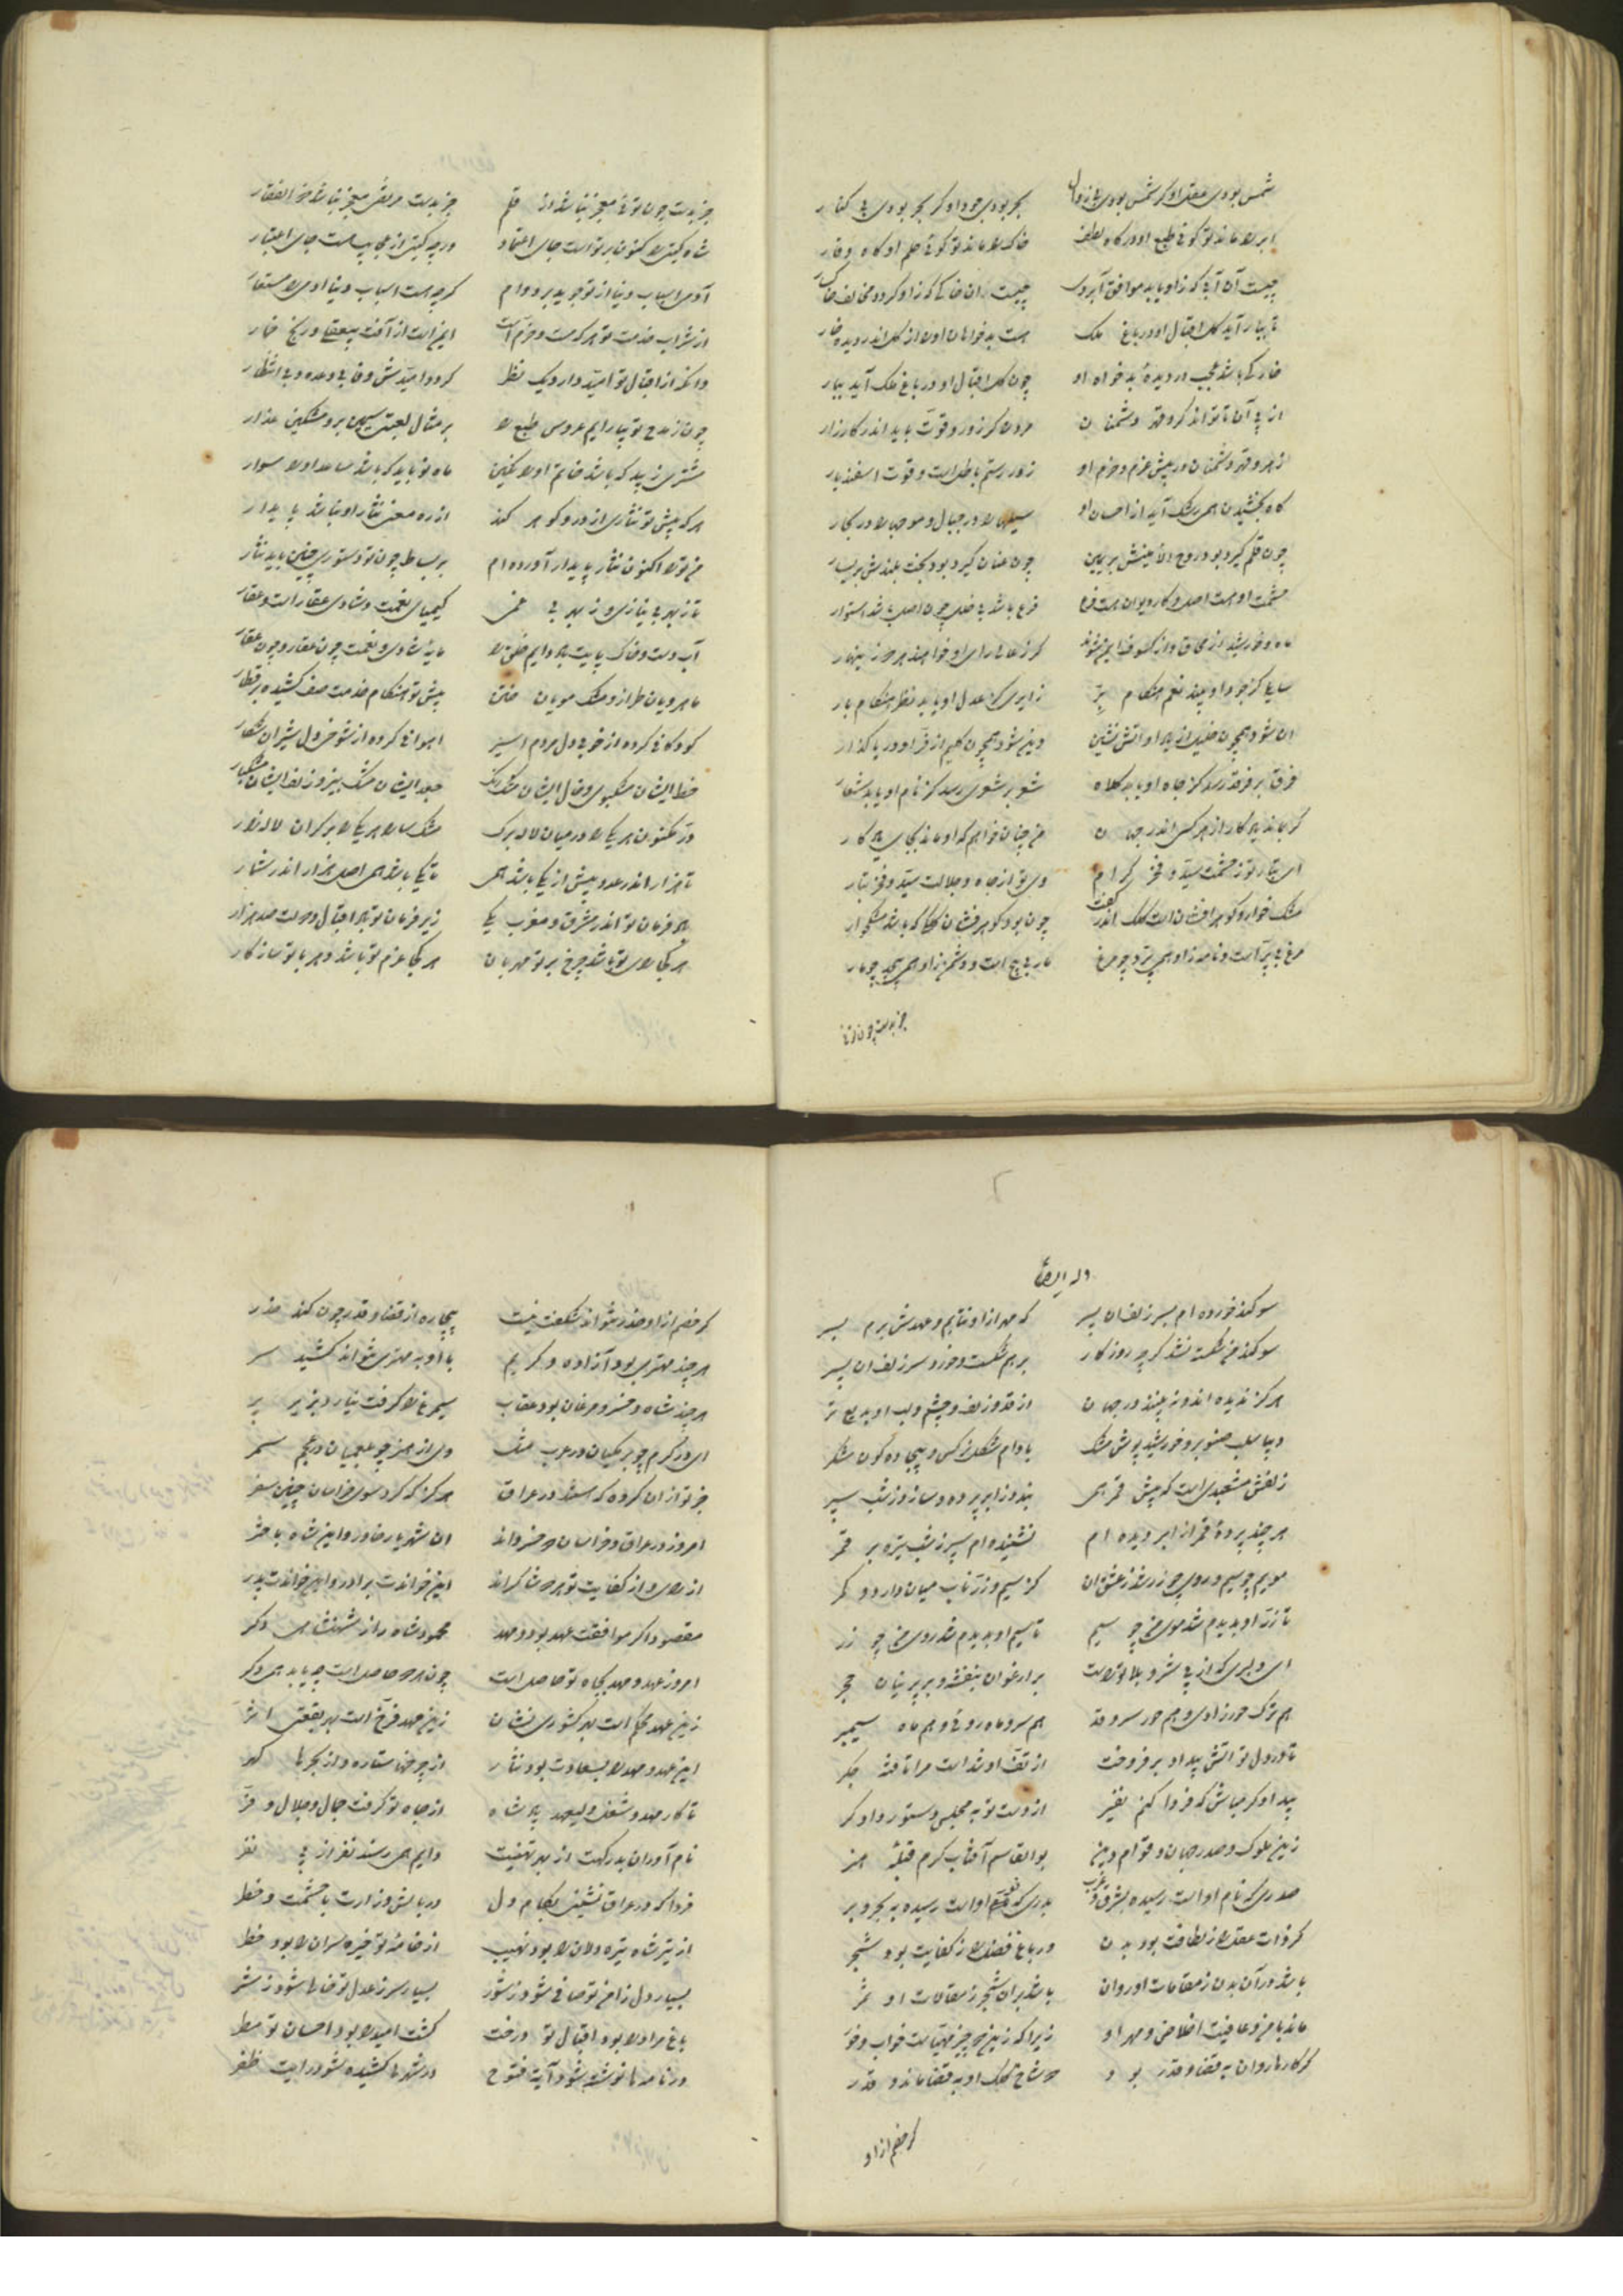 شمس بودی عقل او گر شمس بودی بی زوال بحر بودی جود او گر بحر بودی بی کنار
ابر را ماند تو گوئی طبع او در گاه لطف خاک را ماند تو گوئی حلم او گاه وقار
چیست آن آبی که زاو یابد موافق آبروی چیست آن خاکی که زاو گردد مخالف خاکسار
تا ببار آید گل اقبال او در باغ ملک هست بدخواهان او را از گل اندر دیده خار
خار کی باشد عجب در دیده بدخواه او چون گل اقبال او در باغ ملک آید ببار
از پی آن تا تواند کرد قهر دشمنان مردی کز زور و قوت باید اندر کارزار
از هر و قهر دشمنان در پیش عزم و حزم او زور رستم باطل است و قوت اسفندیار
گاه بخشیدن همی رشک آید از احسان او سیلها را در جبال و موجها را در بحار
چون قلم گیرد بود روح الامینش بر یمین چون عنان گیرد بود بخت بلندش بر یسار
حشمت او هست اصل و کار دیوان هست فرع فرع باشد بی خلل چون اصل باشد استوار
ماه و خورشید از محاق و از کسوف ایمن شوند گر ز عالی رای او خواهند هر دو زینهار
سایلی کز جود او بیند نعم هنگام بزّ زایری کز عدل او یابد نظر هنگام بار
آن شود همچون خلیل از بهر او آتش نشین وین شود همچون کلیم از فرّ او دریا گذار
فرق بر فرقد رسد کز جاه او یابد کلاه شعر بر شعری رسد کز نام او یابد شعار
گر بماند یادگار از هر کس اندر جهان من چنان خواهم که او ماند بجای یادگار
ای تبار تو ز حشمت سید و فخر کرام وی تو از جاه و جلالت سید و فخر تبار
مشک خوار و گوهر افشان است کلک اندر کفت چون بود گوهرفشان کلکی که باشد مشکخوار
مرغ بی پرّ است و نامه زاو همی پرّد چو مرغ مار بی پیچ است و دشمن زاو همی پیچد چو مار
جز بدست چون توئی
جز بدست چون توئی معجز نباشد از قلم جز بدست مرتضی معجز نباشد ذوالفقار
شاه گیتی را کنون بر تو است جای اعتماد ور چه گیتی از عجایب هست جای اعتبار
آدمی اسباب دنیا از تو جوید بر دوام گرچه هست اسباب دنیا آدمی را مستعار
از شراب خدمت تو هر که مست و خرم است ایمن است از آفت بیعقلی و رنج خمار
وانکه از اقبال تو امید دارد یک نظر گردد امیدش وفا بی وعده و بی انتظار
چون ز مدح تو بیارایم عروس طبع را بر مثال لعبتی سیمین بر و مشکین عذار
مشتری زیبد که باشد خاتم او را نگین ماه نو باید که باشد ساعد او را سوار
هر که پیش تو نثاری از در و گوهر کند از ره معنی نثار او نباشد پایدار
من ترا اکنون نثار پایدار آورده ام بر بساط چون تو دستوری چنین باید نثار
تا ز بهر بی نیازی و ز بهر بی غمی کیمیای نعمت و شادی عقار است و عقار
آب دست و خاک پایت باد دایم خلق را مایه شادی و نعمت چون عقار و چون عقار
ماهرویان طراز و مشک مویان ختن پیش تو هنگام خدمت صف کشیده بر قطار
کودکانی کرده از خوبی دل مردم اسیر آهوانی کرده از شوخی دل شیران شکار
خط ایشان مشکبوی و خال ایشان مشک رنگ جعد ایشان مشک بیز و زلف ایشان مشکبار
درّ مکنون هر یکی را در میان لاله برگ مشک سارا هر یکی را بر کران لاله زار
تا هزار اندر عدد بیش از یکی باشد همی تا یکی باشد همی اصل هزار اندر شمار
باد فرمان تو اندر مشرق و مغرب یکی زیر فرمان تو باد اقبال و دولت صد هزار
هر کجا رای تو باشد چرخ بر تو مهربان هر کجا عزم تو باشد دهر با تو سازگار
وله ایضاً
سوگند خورده ام بسر زلف آن پسر که مهر از او نتابم و عهدش برم بسر
سوگند من شکسته نشد گرچه روزگار برهم شکست و خورد سر زلف آن پسر
هرگز ندیده اند و نه بینند در جهان از قد و زلف و چشم و لب او بدیع تر
دیبا سلب صنوبر و خورشید پوش مشک بادام شکل نرگس و بیجاده گون شکر
زلفش مشعبدی است که پیش قمر همی بندد ز ابر پرده و سازد ز شب سپر
هر چند پرده قمر از ابر دیده ام نشنیده ام سپر ز شب تیره بر قمر
مویم چو سیم و روی چو زر شد ز عشق آن کز سیم و زر ناب میان دارد و کمر
تا زرّ او بدیدم شد موی من چو سیم تا سیم او بدیدم شد روی من چو زر
ای دلبری که از پی شر و بلا تراست بر ارغوان بنفشه و بر پرنیان حجر
هم ترک حورزادی و هم حور سرو قد هم سرو ماه روئی و هم ماه سیمبر
تا در دل تو آتش بیداد برفروخت از تفّ او شد است مرا تافته جگر
بیدادگر مباش که فردا کنم نفیر از دست تو به مجلس دستور دادگر
زین ملوک و صدر جهان و قوام دین بوالقاسم آفتاب کرم قبله هنر
صدری که نام او است رسیده بشرق و غرب بدری که صیت او است رسیده به بحر و بر
گر ذات عقل را ز لطافت بود بدن ور باغ فضل را ز کفایت بود شجر
باشد در آن بدن ز مقامات او روان باشد بر آن شجر ز مقالات او ثمر
ماند بامن و عافیت اخلاص و مهر او زیرا که زین دو چیز مهیّاست خواب و خور
گر کارها روان به قضا و قدر بود دو شاخ کلک او به قضا ماند و قدر
گر خصم از او
گر خصم از او حذر نتواند شگفت نیست بیچاره از قضا و قدر چون کند حذر
هر چند مهتری بود آزاده و کریم با او به مهتری نتواند کشید سر
هر چند شاه و خسرو مرغان بود عقاب سیمرغ را گرفت نیارد بزیر پر
ای در کرم چو برمکیان در عرب مثل وی از هنر چو بلعمیان در عجم سمر
جز تو از آن گروه که هستند در عراق هرگز که کرد سوی خراسان چنین سفر
امروز در عراق و خراسان دو خسرواند آن شهریار خاور و این شاه باختر
از رای و از کفایت تو هر دو شاکراند این خواندت برادر و آن خواندت پدر
مقصود اگر موافقت عهد بود و مهد محمود شاه راز شهنشاهی دگر
امروز عهد و مهد بجاه تو حاصل است چون هر دو حاصل است چه باید همی دگر
زین عهد محکم است بهر کشوری نشان زین مهد فرخ است بهر بقعتی اثر
این عهد و مهد را بسعادت بود نثار از چرخها ستاره و از بحرها گهر
تا کار مهد و شغل ولیعهد پادشاه از جاه تو گرفت جمال و جلال و فرّ
نام آوران بدرگهت از بهر تهنیت دایم همی رسند نفر از پی نفر
فردا که در عراق نشینی بکام دل در بالش وزارت با حشمت و خطر
از تیر شاه تیره دلان را بود نهیب از خامه تو خیره سران را بود خطر
بسیار دل ز امن تو صافی شود ز شور بسیار سر ز عدل تو خالی شود ز شر
باغ مراد را بود اقبال تو درخت کشت امید را بود احسان تو مطر
در نامه ها نوشته شود آیت فتوح در شهرها کشیده شود رایت ظفر